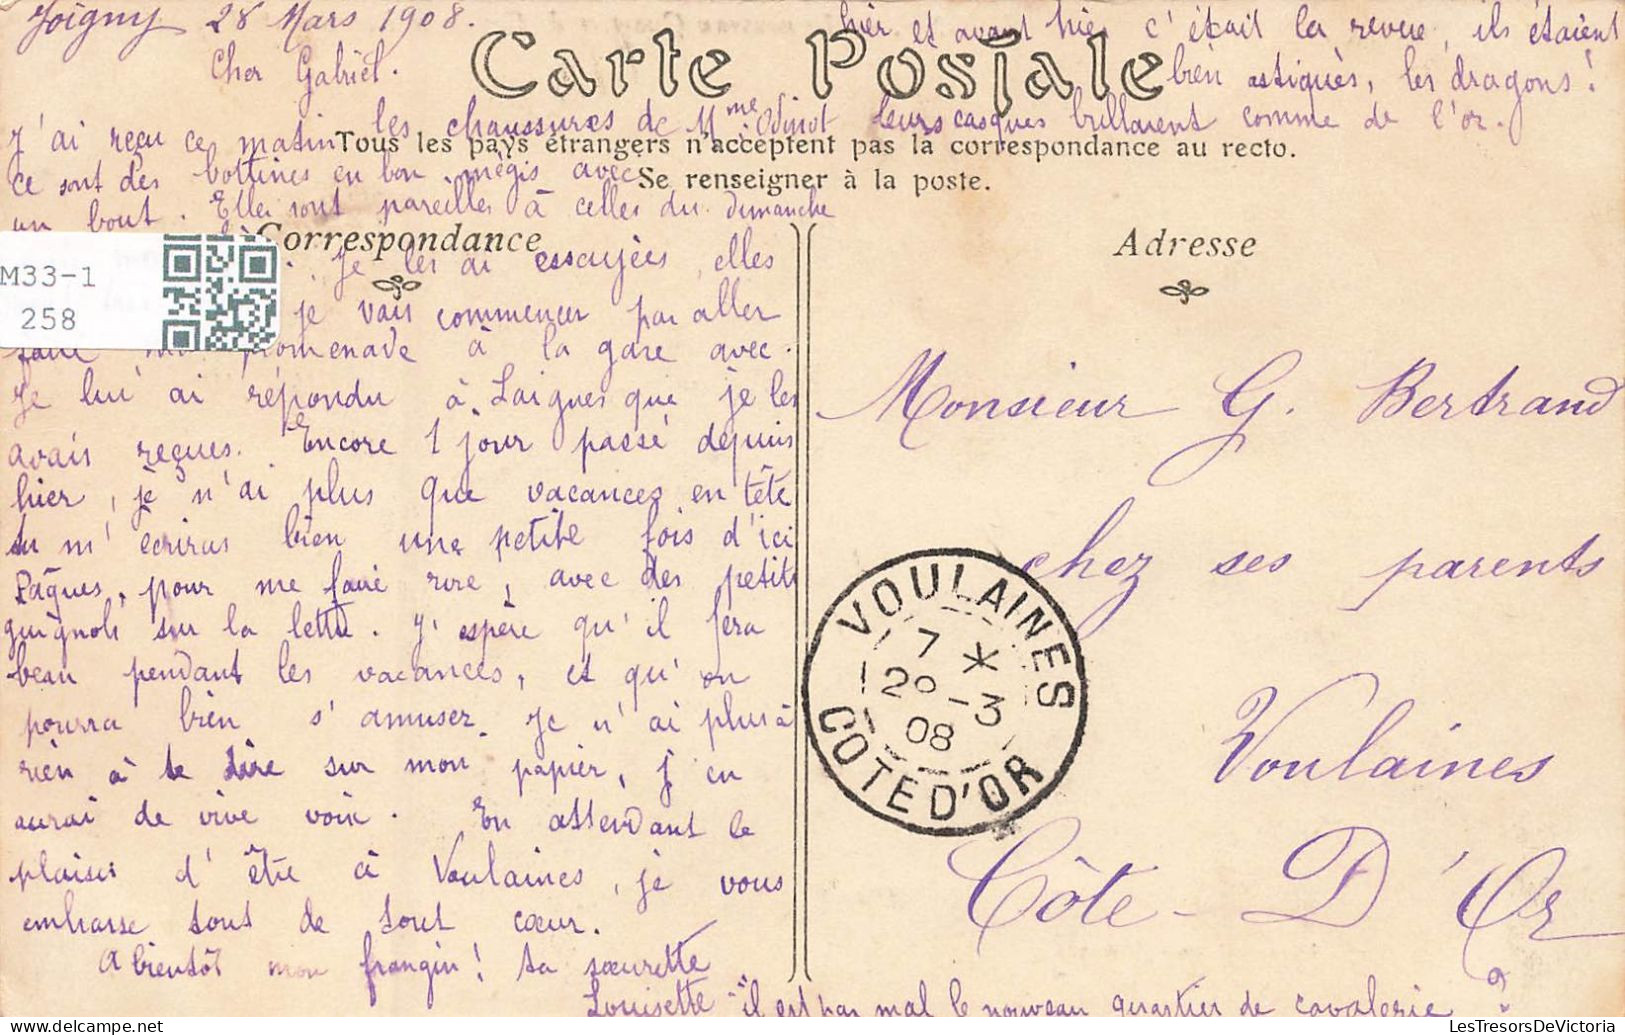 Joigny 28 Mars 1908.
Cher Gabriel.
Carte Postale
J'ai reçu ce matin les chaussures de Mme Odinot
Tous les pays étrangers n'acceptent pas la correspondance au recto.
ce sont des bottines en bon mégis avec
Se renseigner à la poste.
un bout. Elles sont pareilles à celles du dimanche
Correspondance
Je les ai essayées, elles
je vais commencer par aller
faire promenade à la gare avec.
Je lui ai répondu à Laignes que je les
avais reçues. Encore 1 jour passé depuis
hier, je n'ai plus que vacances en tête
tu m'écriras bien une petite fois d'ici
Pâques, pour me faire rire, avec des petits
guignols sur la lettre. J'espère qu'il fera
beau pendant les vacances, et qu'on
pourra bien s'amuser. Je n'ai plus
rien à te dire sur mon papier, j'en
aurai de vive voix. En attendant le
plaisir d'être à Voulaines, je vous
embrasse tout de tout cœur.
A bientôt mon frangin! ta sœurette
Louisette
hier et avant hier c'était la revue, ils étaient
bien astiqués, les dragons!
leurs casques brillaient comme de l'or.
Adresse
Monsieur G. Bertrand
chez ses parents
Voulaines
Côte-D'Or
il est pas mal le nouveau quartier de cavalerie ?
VOULAINES
7 *
29-3
08
COTE D'OR
M33-1
258
LesTresorsDeVictoria